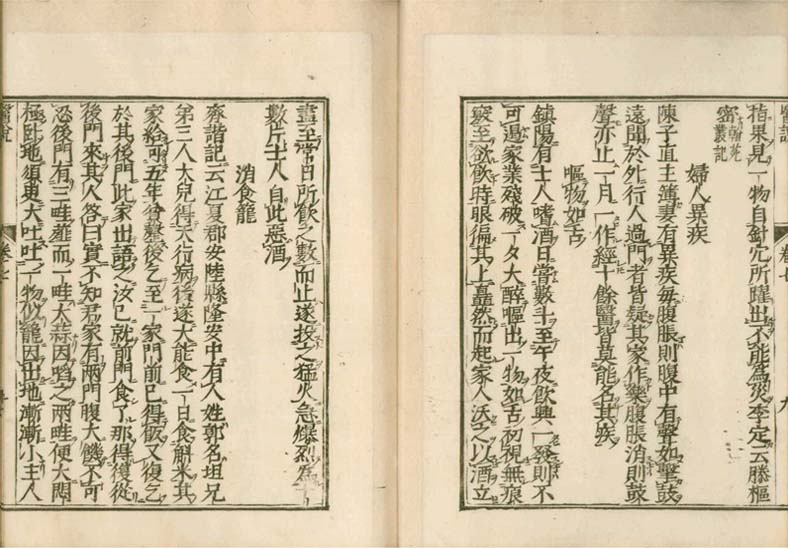 醫說
卷七
九
稭果見一物自針穴所躍出不能爲災李定云滕樞
密 翰苑叢記
婦人異疾
陳子直主簿妻有異疾每腹脹則腹中有聲如擊鼓
遠聞於外行人過門者皆疑其家作樂腹脹消則鼓
聲亦止一月一作經十餘醫皆莫能名其疾
嘔物如舌
鎮陽有士人嗜酒日嘗數斗至午夜飲興一發則不
可遏家業殘破一夕大醉嘔出一物如舌初視無痕
竅至欲飲時眼徧其上矗然而起家人沃之以酒立
盡至常日所飲之數而止遂投之猛火急爆烈爲十
數片士人自此惡酒
消食籠
齊諧記云江夏郡安陸縣隆安中有人姓郭名坦兄
弟三人大兒得天行病後遂大能食一日食斛米其
家給可五年後乞至一家門前已得飯又復乞
於其後門此家出語之汝已就前門食了那得復從
後門來其人答曰實不知君家有兩門腹大饑不可
忍後門有三畦薤而一畦大蒜因啗之兩畦便大悶
極臥地須臾大吐吐一物似籠因出地漸漸小主人
醫說
卷七